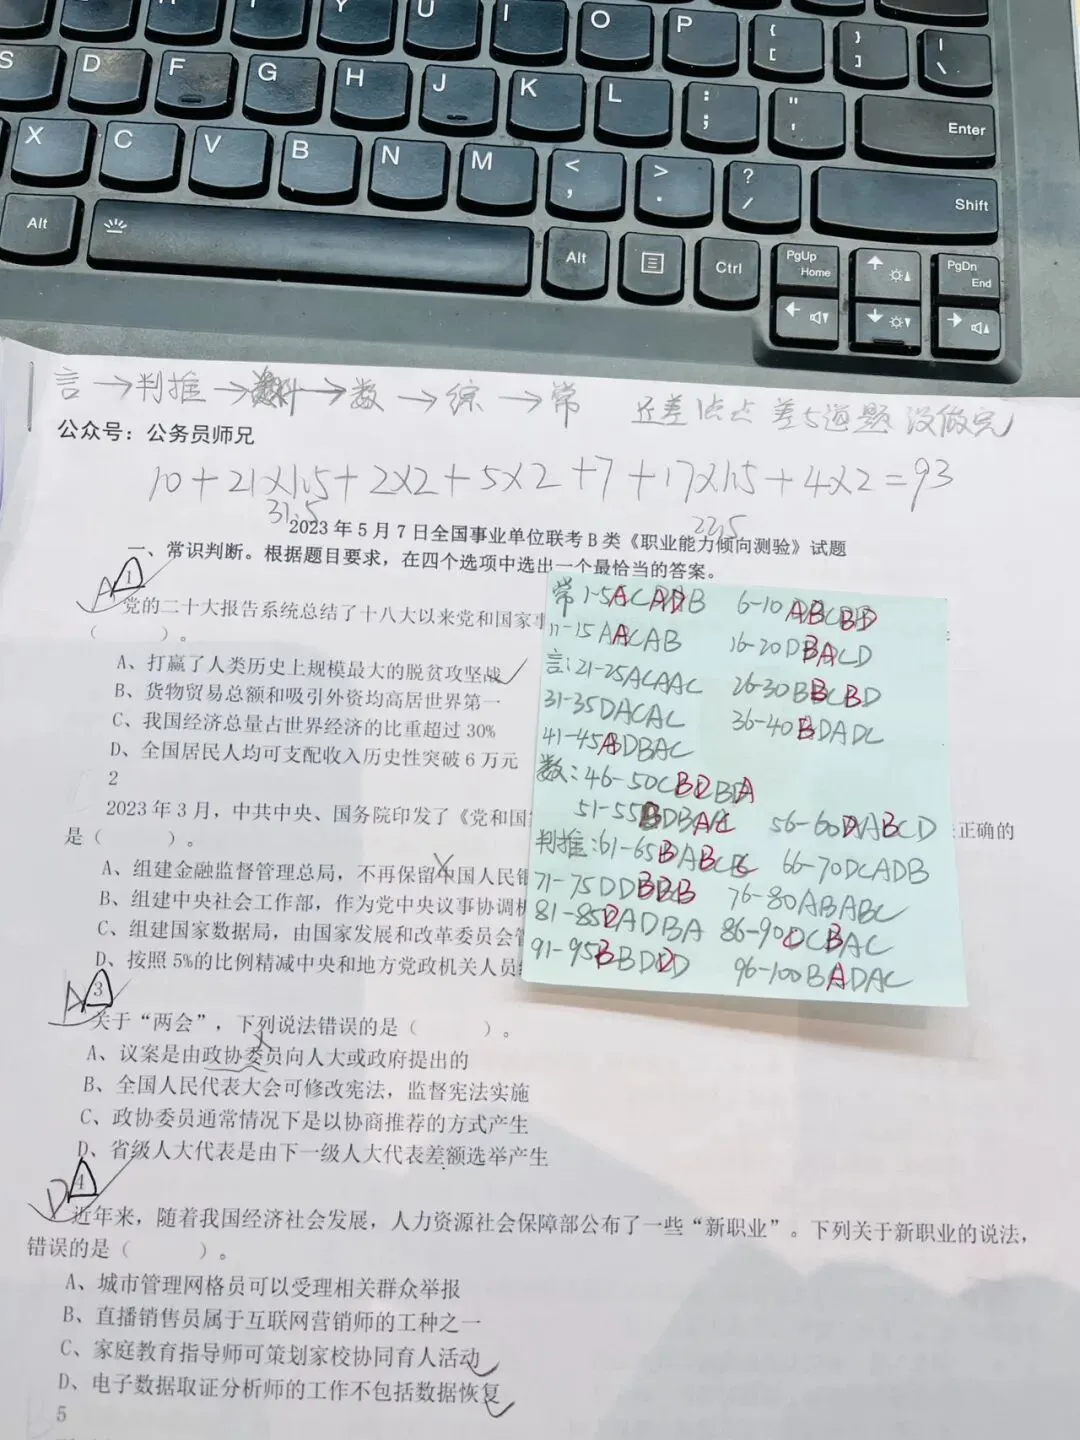 T Y U I O P { [ } ] | \
S D F G H J K L : ; " ' Enter
X C V B N M < , > . ? / Shift
Alt Alt Ctrl PgUp Home PgDn End
言→判推→→数→综→常 还差1点点 差5道题 没做完
公众号：公务员师兄
10+21×1.5+2×2+5×2+7+17×1.5+4×2=93
31.5
2023年5月7日全国事业单位联考B类《职业能力倾向测验》试题
一、常识判断。根据题目要求，在四个选项中选出一个最恰当的答案。
A 1
党的二十大报告系统总结了十八大以来党和国家事
（ ）。
A、打赢了人类历史上规模最大的脱贫攻坚战
B、货物贸易总额和吸引外资均高居世界第一
C、我国经济总量占世界经济的比重超过30%
D、全国居民人均可支配收入历史性突破6万元
2
2023年3月，中共中央、国务院印发了《党和国 正确的
是（ ）。
A、组建金融监督管理总局，不再保留中国人民银
B、组建中央社会工作部，作为党中央议事协调机
C、组建国家数据局，由国家发展和改革委员会管
D、按照5%的比例精减中央和地方党政机关人员
A 3
关于“两会”，下列说法错误的是（ ）。
A、议案是由政协委员向人大或政府提出的
B、全国人民代表大会可修改宪法，监督宪法实施
C、政协委员通常情况下是以协商推荐的方式产生
D、省级人大代表是由下一级人大代表差额选举产生
D 4
近年来，随着我国经济社会发展，人力资源社会保障部公布了一些“新职业”。下列关于新职业的说法，
错误的是（ ）。
A、城市管理网格员可以受理相关群众举报
B、直播销售员属于互联网营销师的工种之一
C、家庭教育指导师可策划家校协同育人活动
D、电子数据取证分析师的工作不包括数据恢复
5
常1-5ACADB 6-10ABCBD
11-15AACAB 16-20DBACD
言:21-25ACAAC 26-30BBCBD
31-35DACAC 36-40BDADC
41-45ADBAC
数:46-50CBDBA
51-55 DBAC 56-60DABCD
判推:61-65BABCC 66-70DCADB
71-75DDBBB 76-80ABABC
81-85DADBA 86-90DCBAC
91-95BBDDD 96-100BADAC